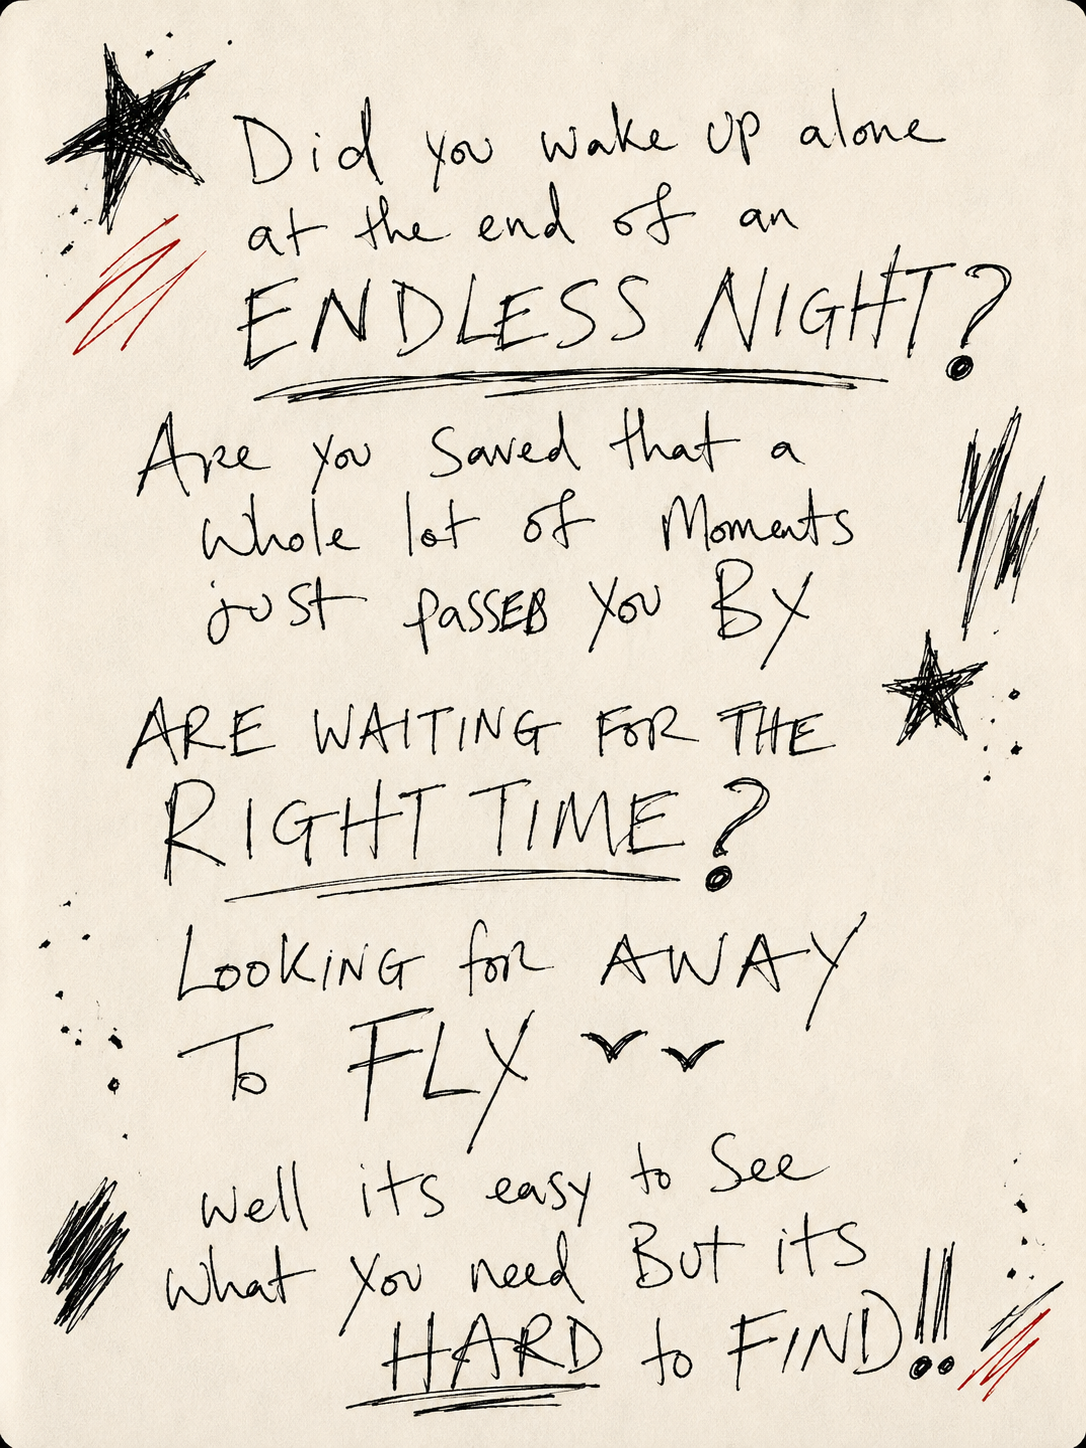 Did you wake up alone
at the end of an
ENDLESS NIGHT?
Are you saved that a
whole lot of Moments
just passed you By
ARE WAITING FOR THE
RIGHT TIME?
LOOKING for AWAY
To FLY
well its easy to See
what you need But its
HARD to FIND!!